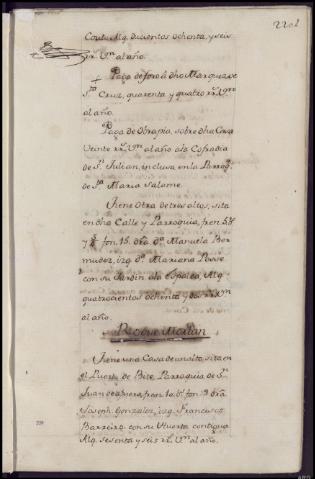 2201
Coul. Alq. ducientos ochenta, y seis
rr.s V.n al año.
Paga de foro á dho Marques de
S.ta Cruz, quarenta y quatro rr.s V.on
al año.
Paga de Obrapia, sobre dha Casa
Veinte rr.s V.on al año ala Cofradia
de S.n Julian, inclusa en la Parroq.a
de S.ta Maria Salome.
Tiene Otra de tres altos, sita
en dha Calle y Parroquia, fren.
y fon. 15. dra D.a Manuela Ber
mudez, izq. D.a Mariana
con su Jardin ala Espalda, Alq.
quatrocientos ochenta y dos rr.s V.on
al año.
Roque Martin
Tiene una Casa de un alto, sita en
el Puerto de Parroquia de S.n
Juan fren. fon. 13 dra
Joseph Gonzalez, izq. Francisco
Barreiro, con su Huerta contigua
Alq. sesenta y seis rr.s V.on al año.